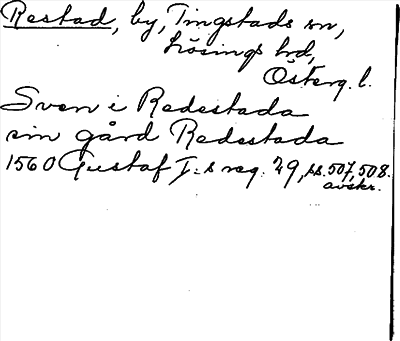 Restad, by, Tingstads sn,
Lösings hd,
Österg. l.
Sven i Redestada
sin gård Redestada
1560 Gustaf I:s reg. 29, ss. 507, 508.
avskr.